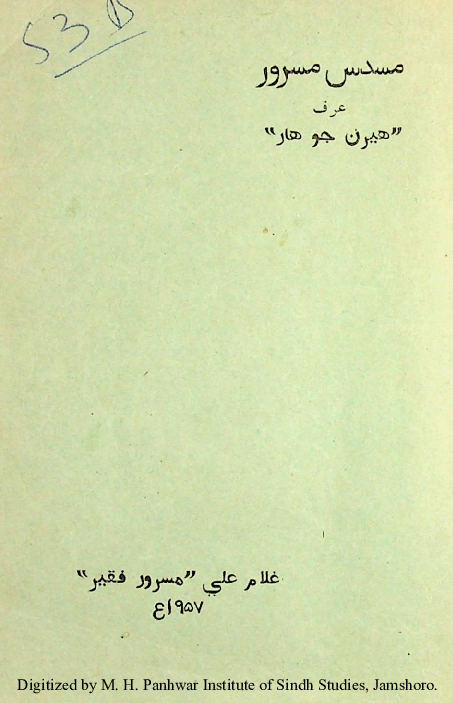 53 B
مسدس مسرور
عرف
”هيرن جو هار“
غلام علي ”مسرور فقير“
۱۹۵۷ع
Digitized by M. H. Panhwar Institute of Sindh Studies, Jamshoro.